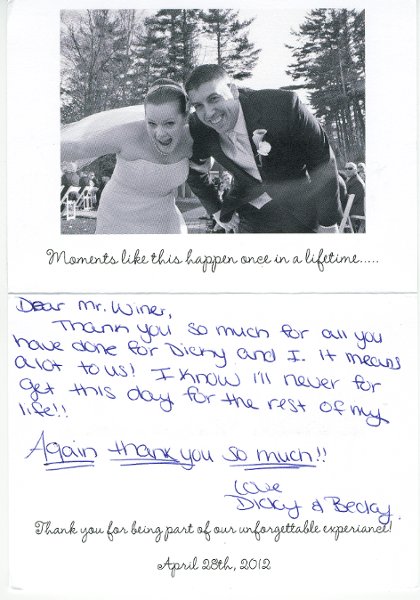 Moments like this happen once in a lifetime.....
Dear Mr. Winer,
Thank you so much for all you
have done for Dicky and I. It means
alot to us! I know i'll never for
get this day for the rest of my
life!!
Again thank you so much!!
Love
Dicky & Becky.
Thank you for being part of our unforgettable experiance!
April 28th, 2012